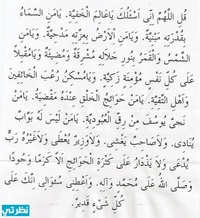 قُلِ اللّٰهُمَّ اِنِّى اَسْئَلُكَ يَاعَالِمَ الْخَفِيَّةِ. يَامَنِ السَّمَاءُ
بِقُدْرَتِهِ مَبْنِيَّةٌ. وَيَامَنِ الْاَرْضُ بِعِزَّتِهِ مَدْحِيَّةٌ. وَيَامَنِ
الشَّمْسُ وَالْقَمَرُ بِنُورِ جَلَالِهِ مُشْرِقَةٌ وَمُضِيئَةٌ وَيَامُقْبِلًا
عَلٰى كُلِّ نَفْسٍ مُؤْمِنَةٍ زَكِيَّةٍ. وَيَامُسَكِّنَ رُعْبَ الْخَائِفِينَ
وَاَهْلِ التَّقِيَّةِ. يَامَنْ حَوَائِجُ الْخَلْقِ عِنْدَهُ مَقْضِيَّةٌ. يَامَنْ
نَجّٰى يُوسُفَ مِنْ رِقِّ الْعُبُودِيَّةِ. يَامَنْ لَيْسَ لَهُ بَوَّابٌ
يُنَادٰى. وَلَاصَاحِبٌ يَغْشٰى. وَلَاوَزِيرٌ يُعْطٰى وَلَاغَيْرُهُ رَبٌّ
يُدْعٰى وَلَا يَزْدَادُ عَلٰى كَثْرَةِ الْحَوَائِجِ اِلَّا كَرَمًا وَجُودًا
وَصَلَّى اللهُ عَلٰى مُحَمَّدٍ وَآلِهِ. وَاَعْطِنِى سُؤَالِى اِنَّكَ عَلٰى
كُلِّ شَىْءٍ قَدِيرٌ.
نظرتي